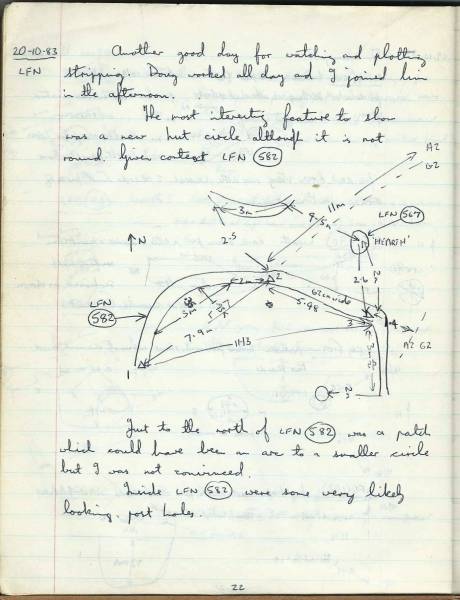 20-10-83
LFN
Another good day for watching and plotting
stripping. Doug worked all day and I joined him
in the afternoon.
The most interesting feature to show
was a new hut circle although it is not
round. Given context LFN 582
A2
G2
11m
3m
9.5m
LFN 567
'HEARTH'
N
2.5
2m
2
2.6
LFN
582
3m
62cm wide
5.98
7.9m
3
4
A2 G2
11.13
3m
1
Just to the north of LFN 582 was a patch
which could have been an arc to a smaller circle
but I was not convinced.
Inside LFN 582 were some very likely
looking post holes.
22